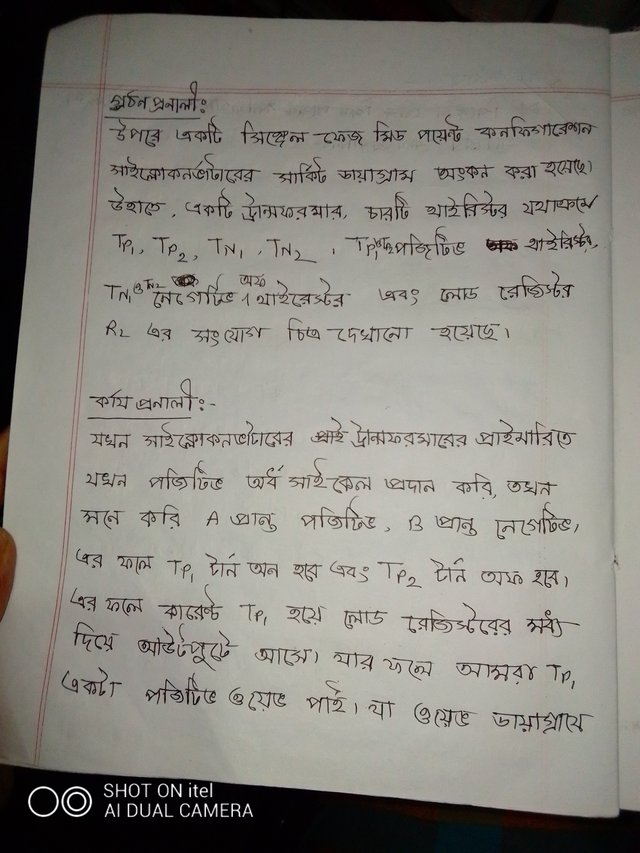 গঠন প্রনালী:
উপরে একটি সিঙ্গেল ফেজ মিড পয়েন্ট কনফিগারেশন
সাইক্লোকনভার্টারের সার্কিট ডায়াগ্রাম অংকন করা হয়েছে।
উহাতে, একটি ট্রান্সফরমার, চারটি থাইরিস্টর যথাক্রমে
TP₁, TP₂, TN₁, TN₂, TP₁ পজিটিভ থাইরিস্টর,
TN₁ও TN₂ নেগেটিভ থাইরেস্টর এবং লোড রেজিস্টর
R₂ এর সংযোগ চিত্র দেখানো হয়েছে।
কার্য প্রনালী:-
যখন সাইক্লোকনভার্টারের ট্রান্সফরমারের প্রাইমারিতে
যখন পজিটিভ অর্ধ সাইকেল প্রদান করি, তখন
মনে করি A প্রান্ত পজিটিভ, B প্রান্ত নেগেটিভ,
এর ফলে TP₁ টার্ন অন হবে এবং TP₂ টার্ন অফ হবে।
এর ফলে কারেন্ট TP₁ হয়ে লোড রেজিস্টরের মধ্য
দিয়ে আউটপুটে আসে। যার ফলে আমরা TP₁
একটা পজিটিভ ওয়েভ পাই। যা ওয়েভ ডায়াগ্রামে
SHOT ON itel
AI DUAL CAMERA